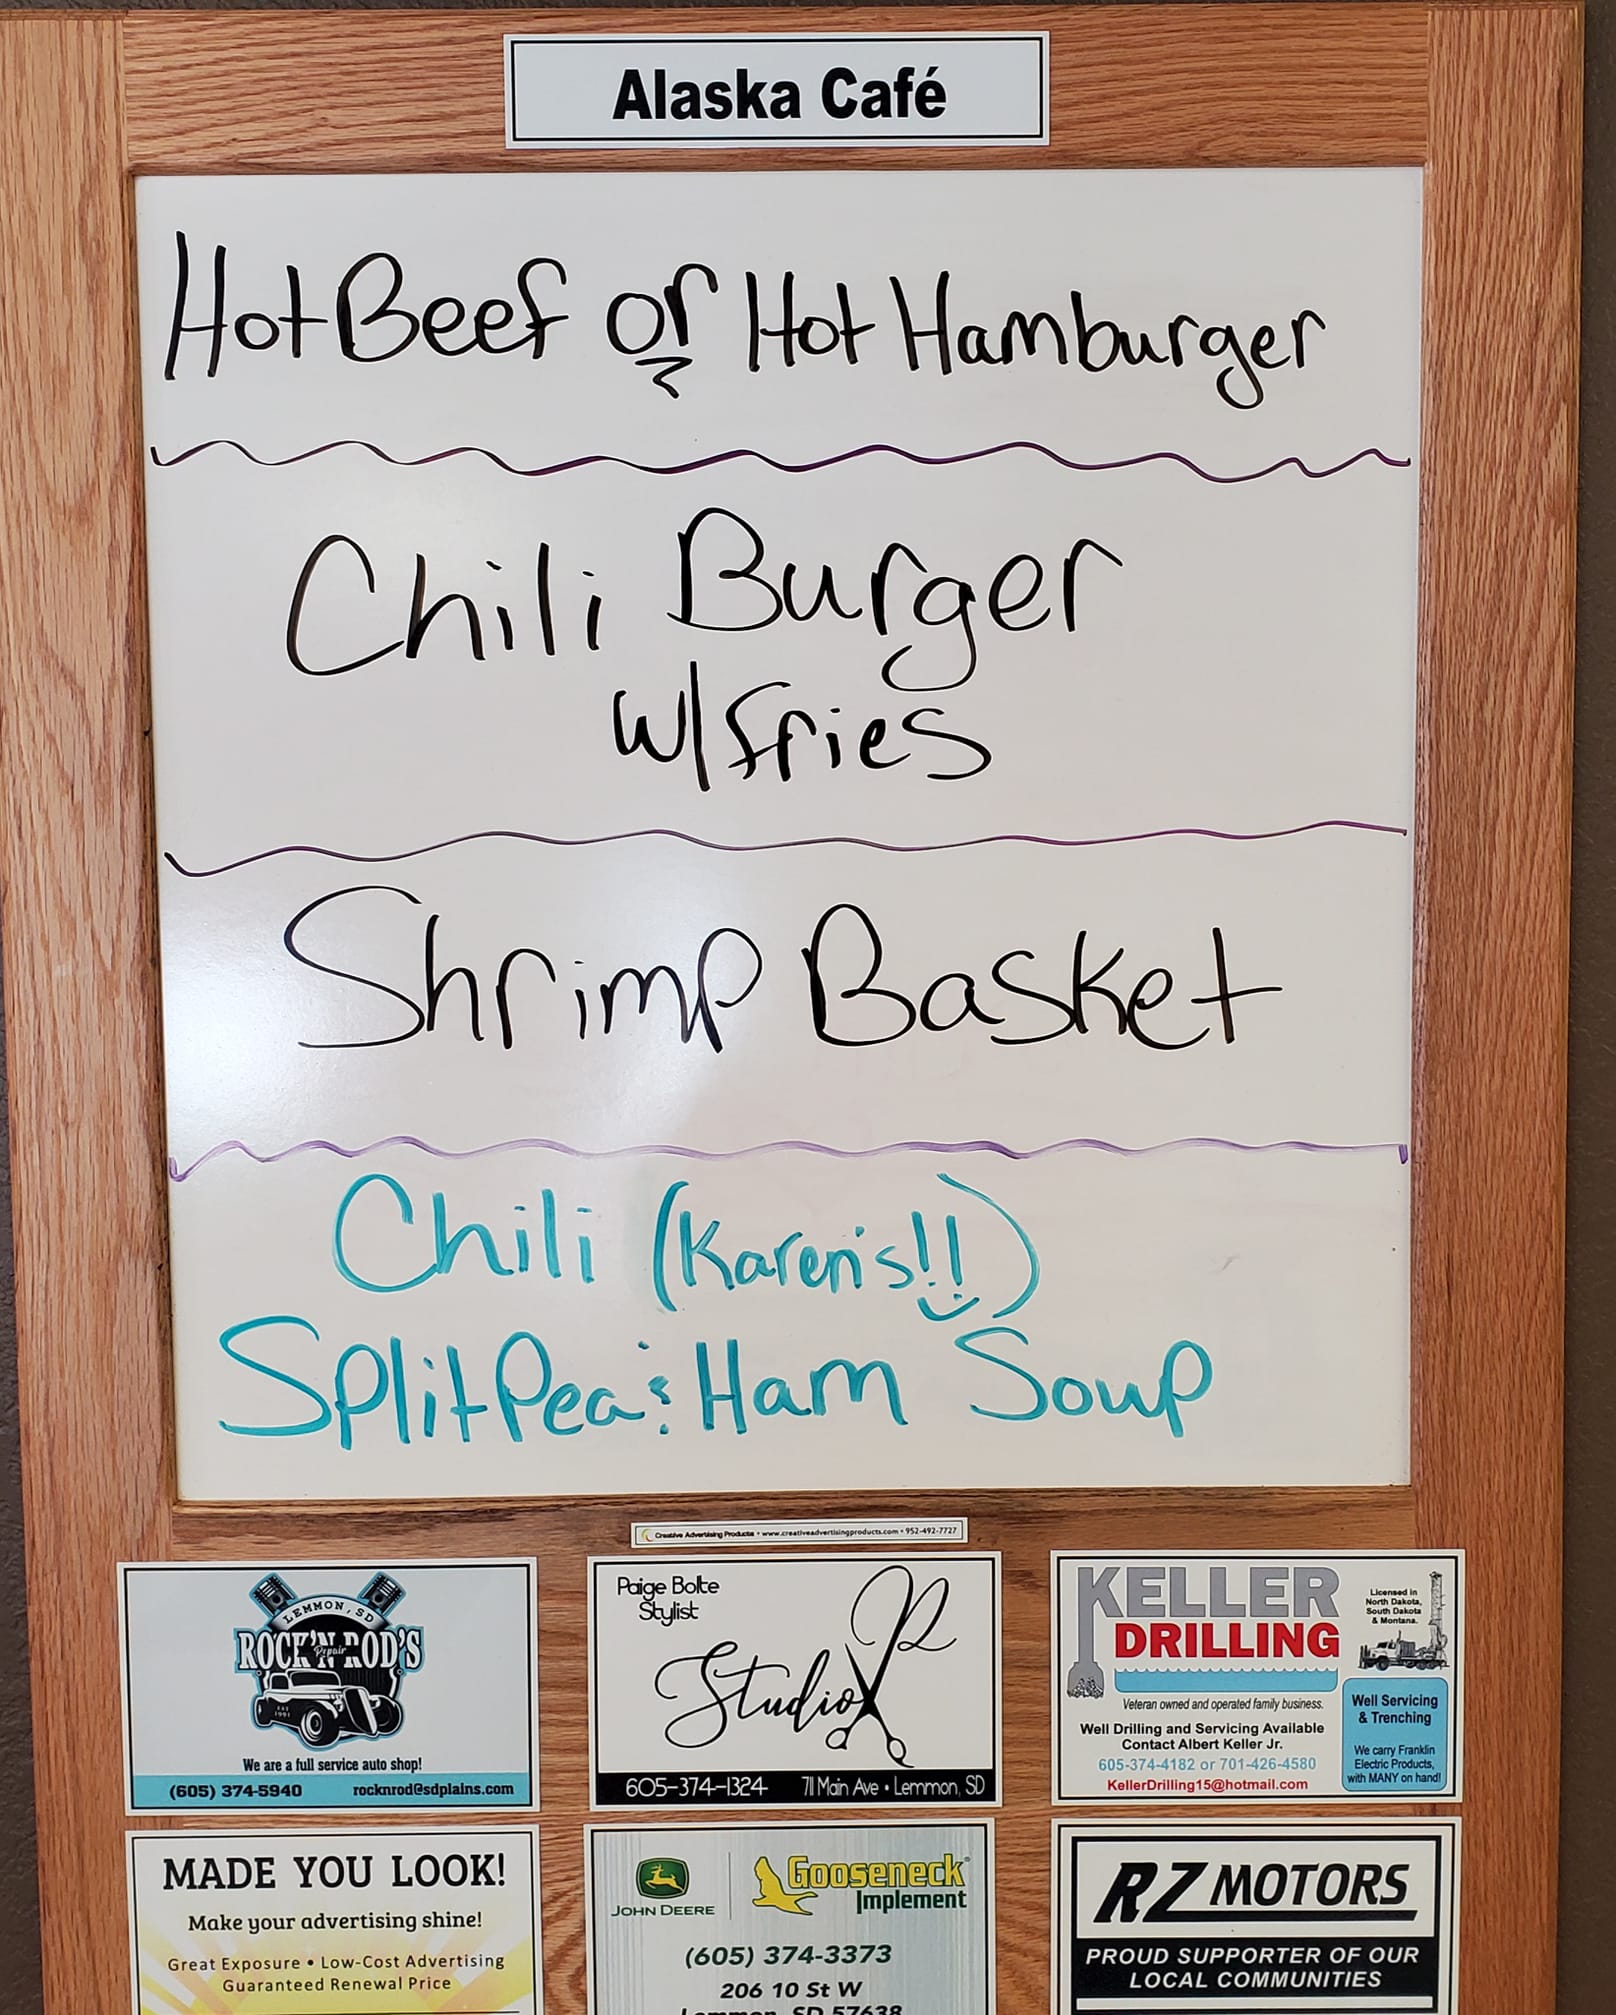 Alaska Café
Hot Beef or Hot Hamburger
Chili Burger
w/fries
Shrimp Basket
Chili (Karen's!!)
Split Pea & Ham Soup
Creative Advertising Products • www.creativeadvertisingproducts.com • 952-492-7727
LEMMON, SD
ROCK'N ROD'S
Repair
EST
1991
We are a full service auto shop!
(605) 374-5940 rocknrod@sdplains.com
Paige Bolte
Stylist
Studio P
605-374-1324 711 Main Ave • Lemmon, SD
KELLER
DRILLING
Licensed in
North Dakota,
South Dakota
& Montana.
Veteran owned and operated family business.
Well Drilling and Servicing Available
Contact Albert Keller Jr.
605-374-4182 or 701-426-4580
KellerDrilling15@hotmail.com
Well Servicing
& Trenching
We carry Franklin
Electric Products,
with MANY on hand!
MADE YOU LOOK!
Make your advertising shine!
Great Exposure • Low-Cost Advertising
Guaranteed Renewal Price
JOHN DEERE
Gooseneck
Implement
(605) 374-3373
206 10 St W
Lemmon, SD 57638
RZ MOTORS
PROUD SUPPORTER OF OUR
LOCAL COMMUNITIES